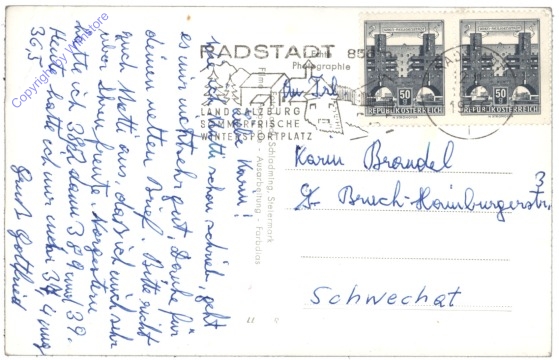 Copyright by ... Store
RADSTADT 850
LAND SALZBURG
SOMMERFRISCHE
WINTERSPORTPLATZ
50
REPUBLIK ÖSTERREICH
50
REPUBLIK ÖSTERREICH
Photographie
Schladming, Steiermark
Ausarbeitung - Farbdias
Liebe Karin!
schon schrieb, geht
es mir nicht sehr gut. Danke für
deinen netten Brief. Bitte richt
auch Mutti aus, dass ich mich sehr
über freute. Vorgestern
hatte ich 38,2 dann 38,9 und 39.
Heute hatte ich nur mehr 37,4 und
36,5
Gruß Gottfried
Karin Brandel
Bruck-Hainburgerstr. 3
Schwechat